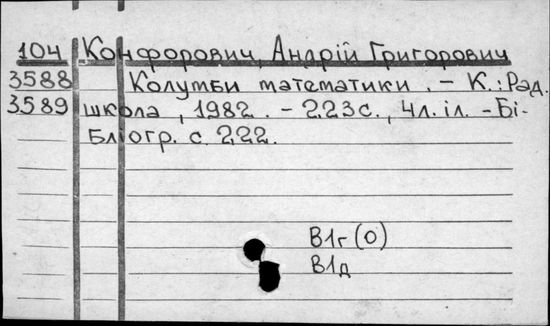 104 Конфорович, Андрій Григорович
3588 Колумби математики. - К.: Рад.
3589 школа, 1982. - 223с., 4л. іл. - Бі-
бліогр. с. 222.
В1г(0)
В1д